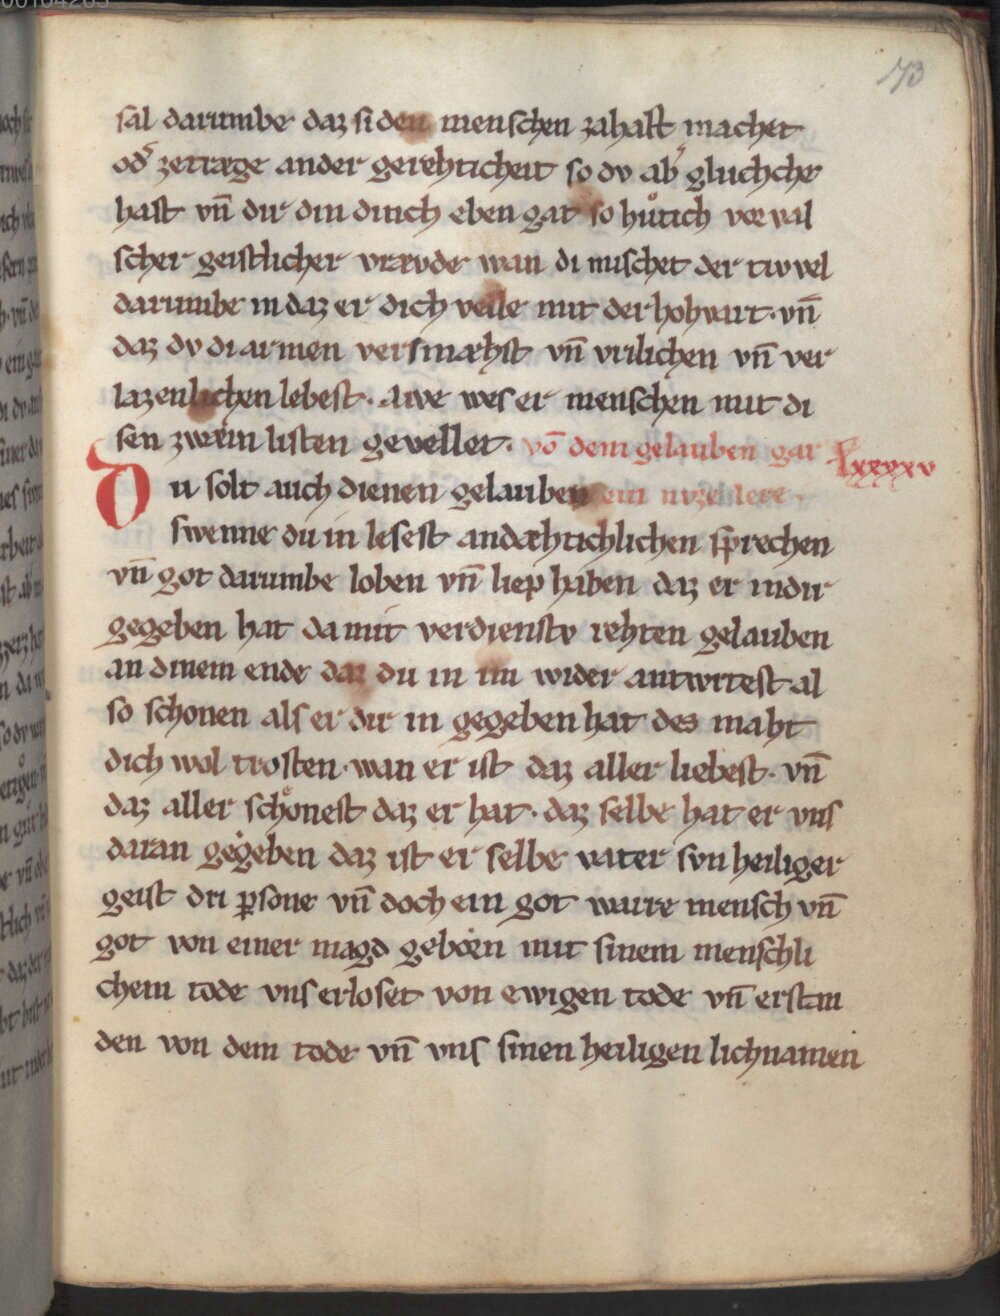 73
sal darumbe daz si den menschen zahaft machet
od᷎ zetræge ander gerehticheit so dv ab᷎ gluchche
hast vn̄ dir din dinch eben gat so huͤtich vor val
scher geistlicher vrævde wan di mischet der tivvel
darumbe in daz er dich velle mit der hohvart· vn̄
daz dv di armen versmæhst vn̄ vrilichen vn̄ ver
lazenlichen lebest· awe wes er menschen mit di
sen zwæin listen gevellet· vō dem gelauben gar
lxxxxv
Du solt auch dienen gelauben ein nvzei lere·
swenne du in lesest andæhtichlichen sprechen
vn̄ got darumbe loben vn̄ liep haben daz er in dir
gegeben hat da mit verdienstv rehten gelauben
an dinem ende daz du in im wider antwrtest al
so schonen als er dir in gegeben hat des maht
dich wol trosten· wan er ist daz aller liebest· vn̄
daz aller schoͤnest daz er hat· daz selbe hat er vns
daran gegeben daz ist er selbe vater svn heiliger
geist dri ꝑsone vn̄ doch ein got warre mensch vn̄
got von einer magd geborn mit sinem menschli
chem tode vns erloset von ewigen tode vn̄ erstan
den von dem tode vn̄ vns sinen heiligen lichnamen